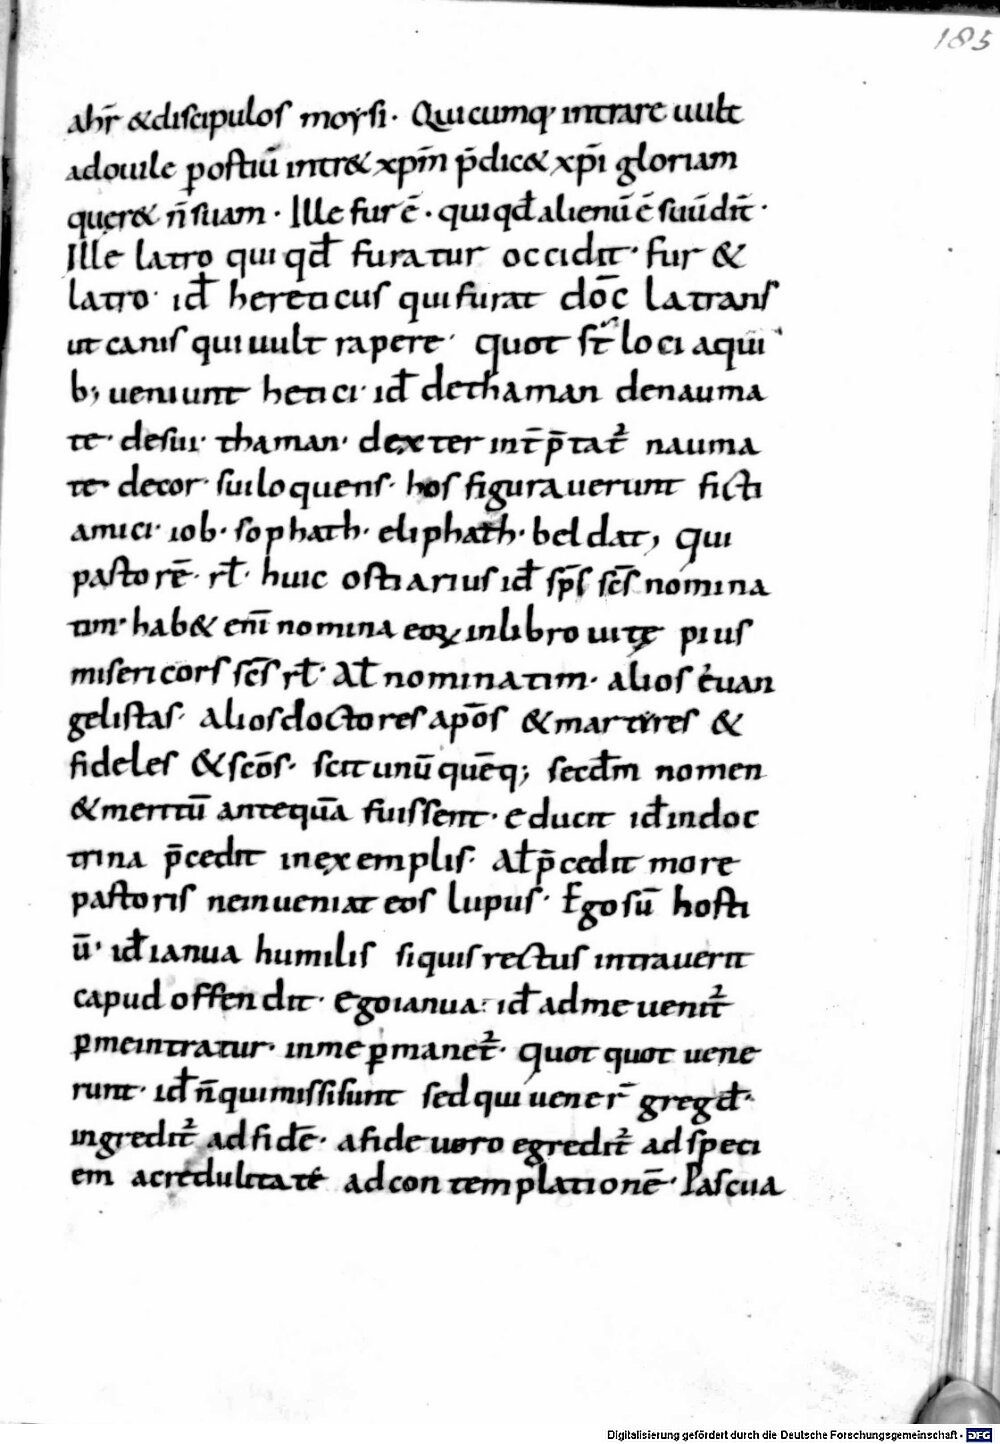 185
abr̄ & discipulos moysi. Quicumq' intrare uult
adouile postiū intr& xp̄m p̄dic& xp̄i gloriam
quęr& n̄ suam. Ille fur ē. qui qđ alienū ē suū dr̄t.
Ille latro qui qđ furatur occidit. fur &
latro. iđ hereticus qui furat doc̄ latrans
ut canis qui uult rapere. quot st̄ loci a qui
b; ueniunt hetici. iđ dethaman denauma
te. de sui. thaman. dexter int̄p̄tat̄ nauma
te. decor. sui loquens. hos figurauerunt ficti
amici. iob. sophath. eliphath. beldat, qui
pastorē. rł. huic ostiarius iđ sp̄s sc̄s nomina
tim. hab& eni̅ nomina eoꝝ in libro uitę pius
misericors sc̄s rł. Ał nominatim. alios euan
gelistas. alios doctores apōs & martires &
fideles & sc̄os. scit unū quēq; secđm nomen
& meritū antequā fuissent. educit iđ in doc
trina p̄cedit in exemplis. Ał p̄cedit more
pastoris ne inueniat eos lupus. Ego sū hosti
ū. iđ ianua humilis si quis rectus intrauerit
capud offendit. Ego ianua. iđ ad me uenit̄
ꝑ me intratur. in me ꝑmanet̄. quot quot uene
runt. iđ n̄ qui missi sunt sed qui uener̄ gregđ.
ingredit̄ ad fidē. a fide uero egredit̄ ad speci
em a credulitate ad contemplationē. Pascua
Digitalisierung gefördert durch die Deutsche Forschungsgemeinschaft - DFG